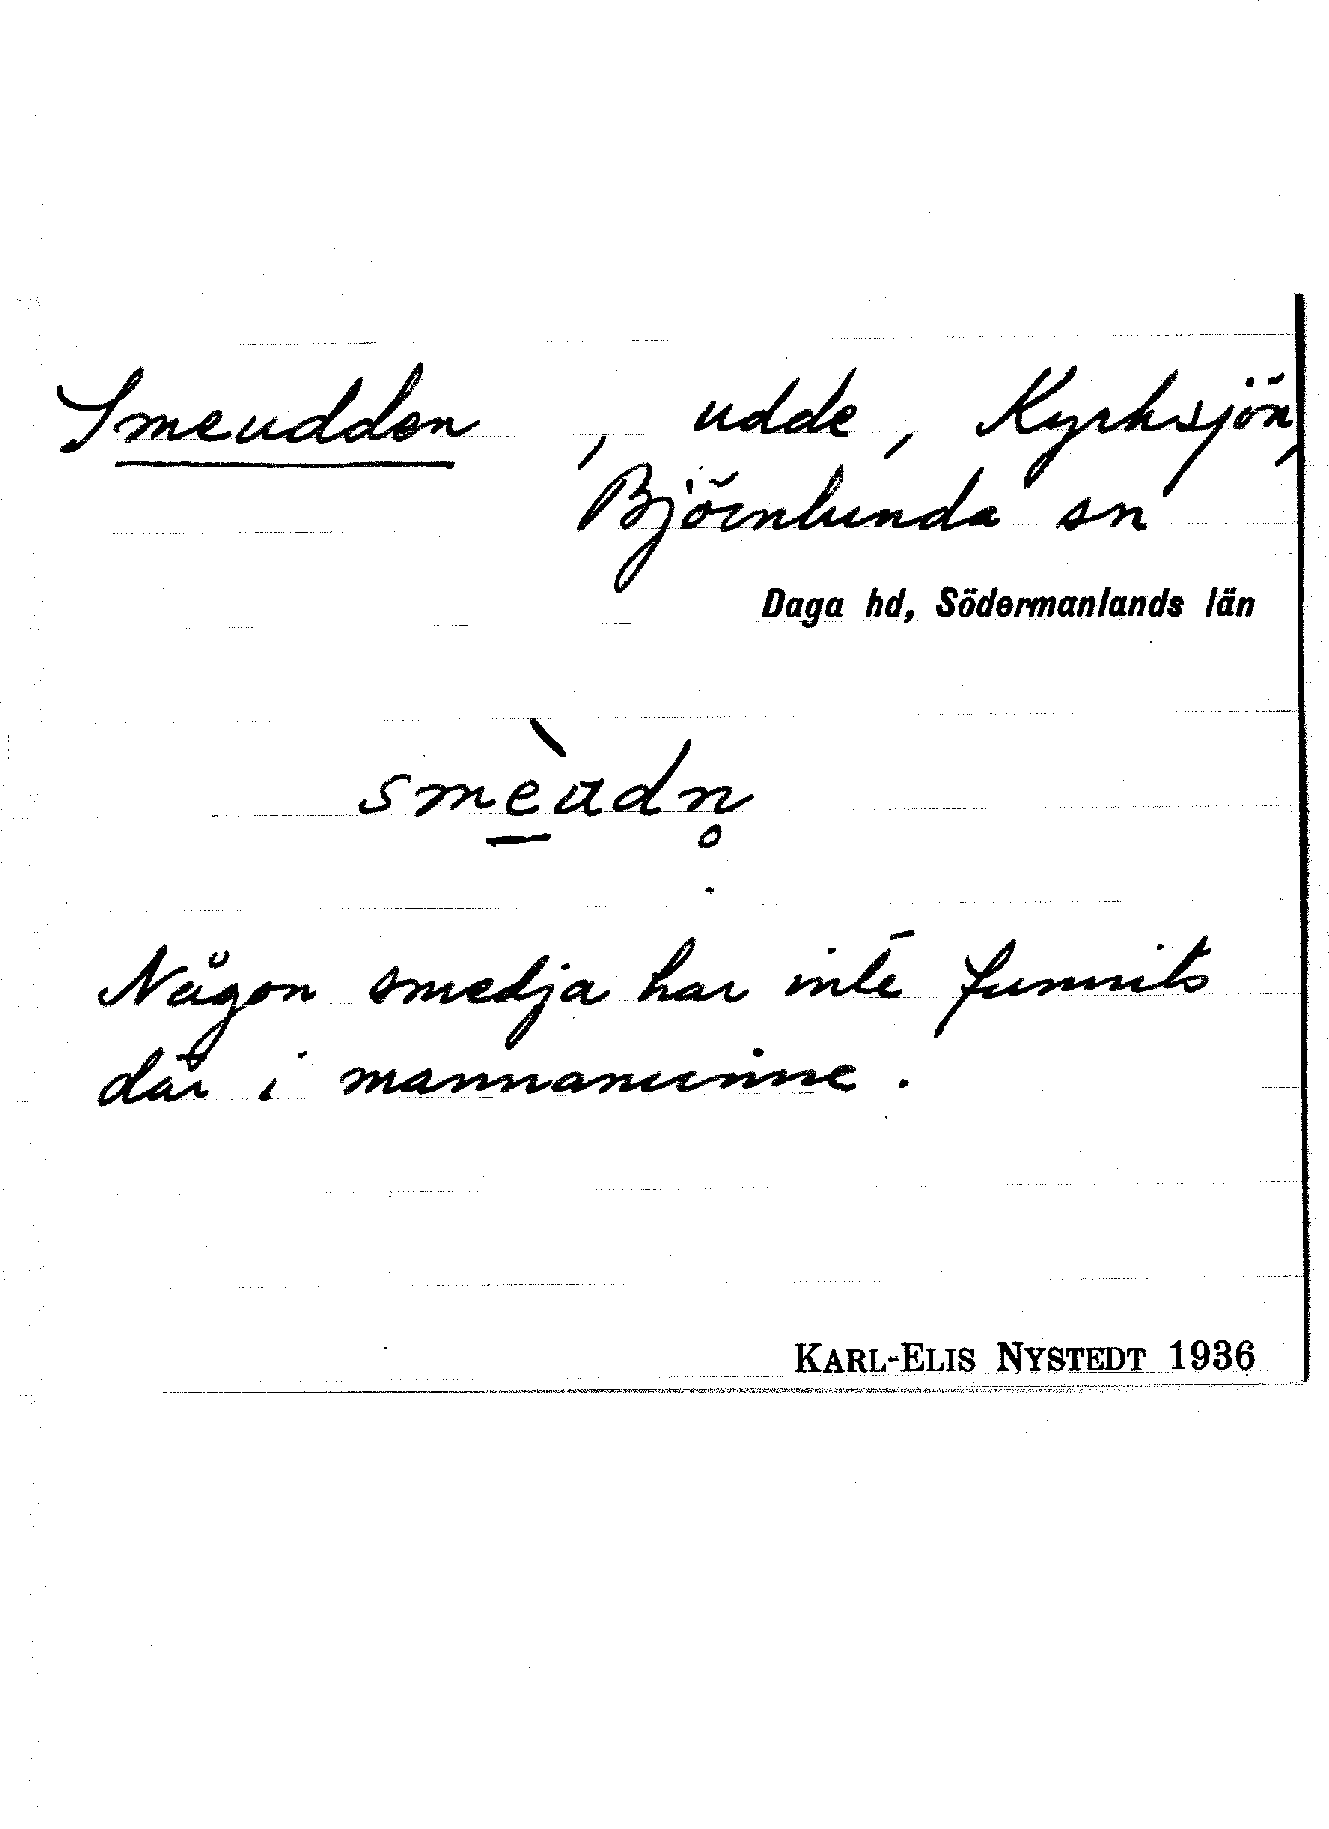 Smeudden, udde, Kyrksjön,
Björnlunda sn
Daga hd, Södermanlands län
smè̱udn̥
Någon smedja har inte funnits
där i mannaminne.
KARL-ELIS NYSTEDT 1936